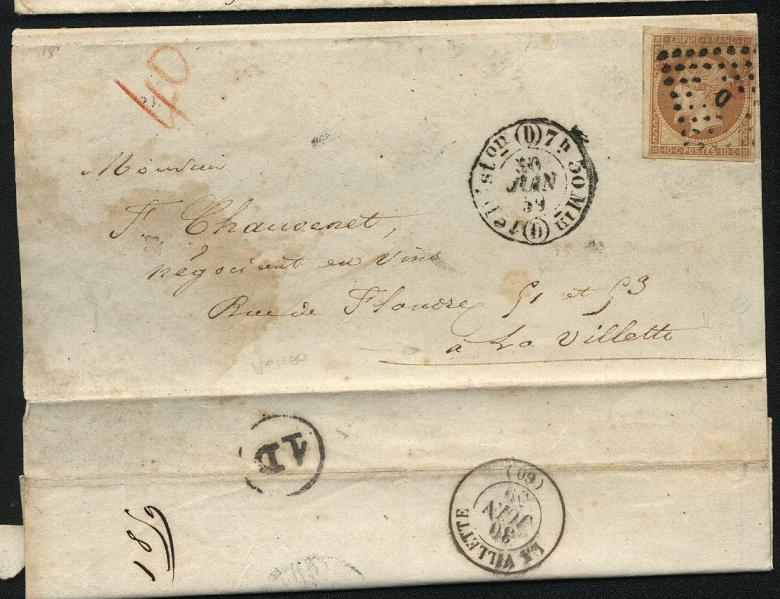 40
EMPIRE FRANC
10·C·POSTES·10·C
D
(D) 7h 50 Min
30
JUIN
59
(D)
Monsieur
F. Chauvenet,
négociant en vins
Rue de Flandre 51 et 53
à La Villette
1D
(60)
59
JUIN
30
LA VILLETTE
1859